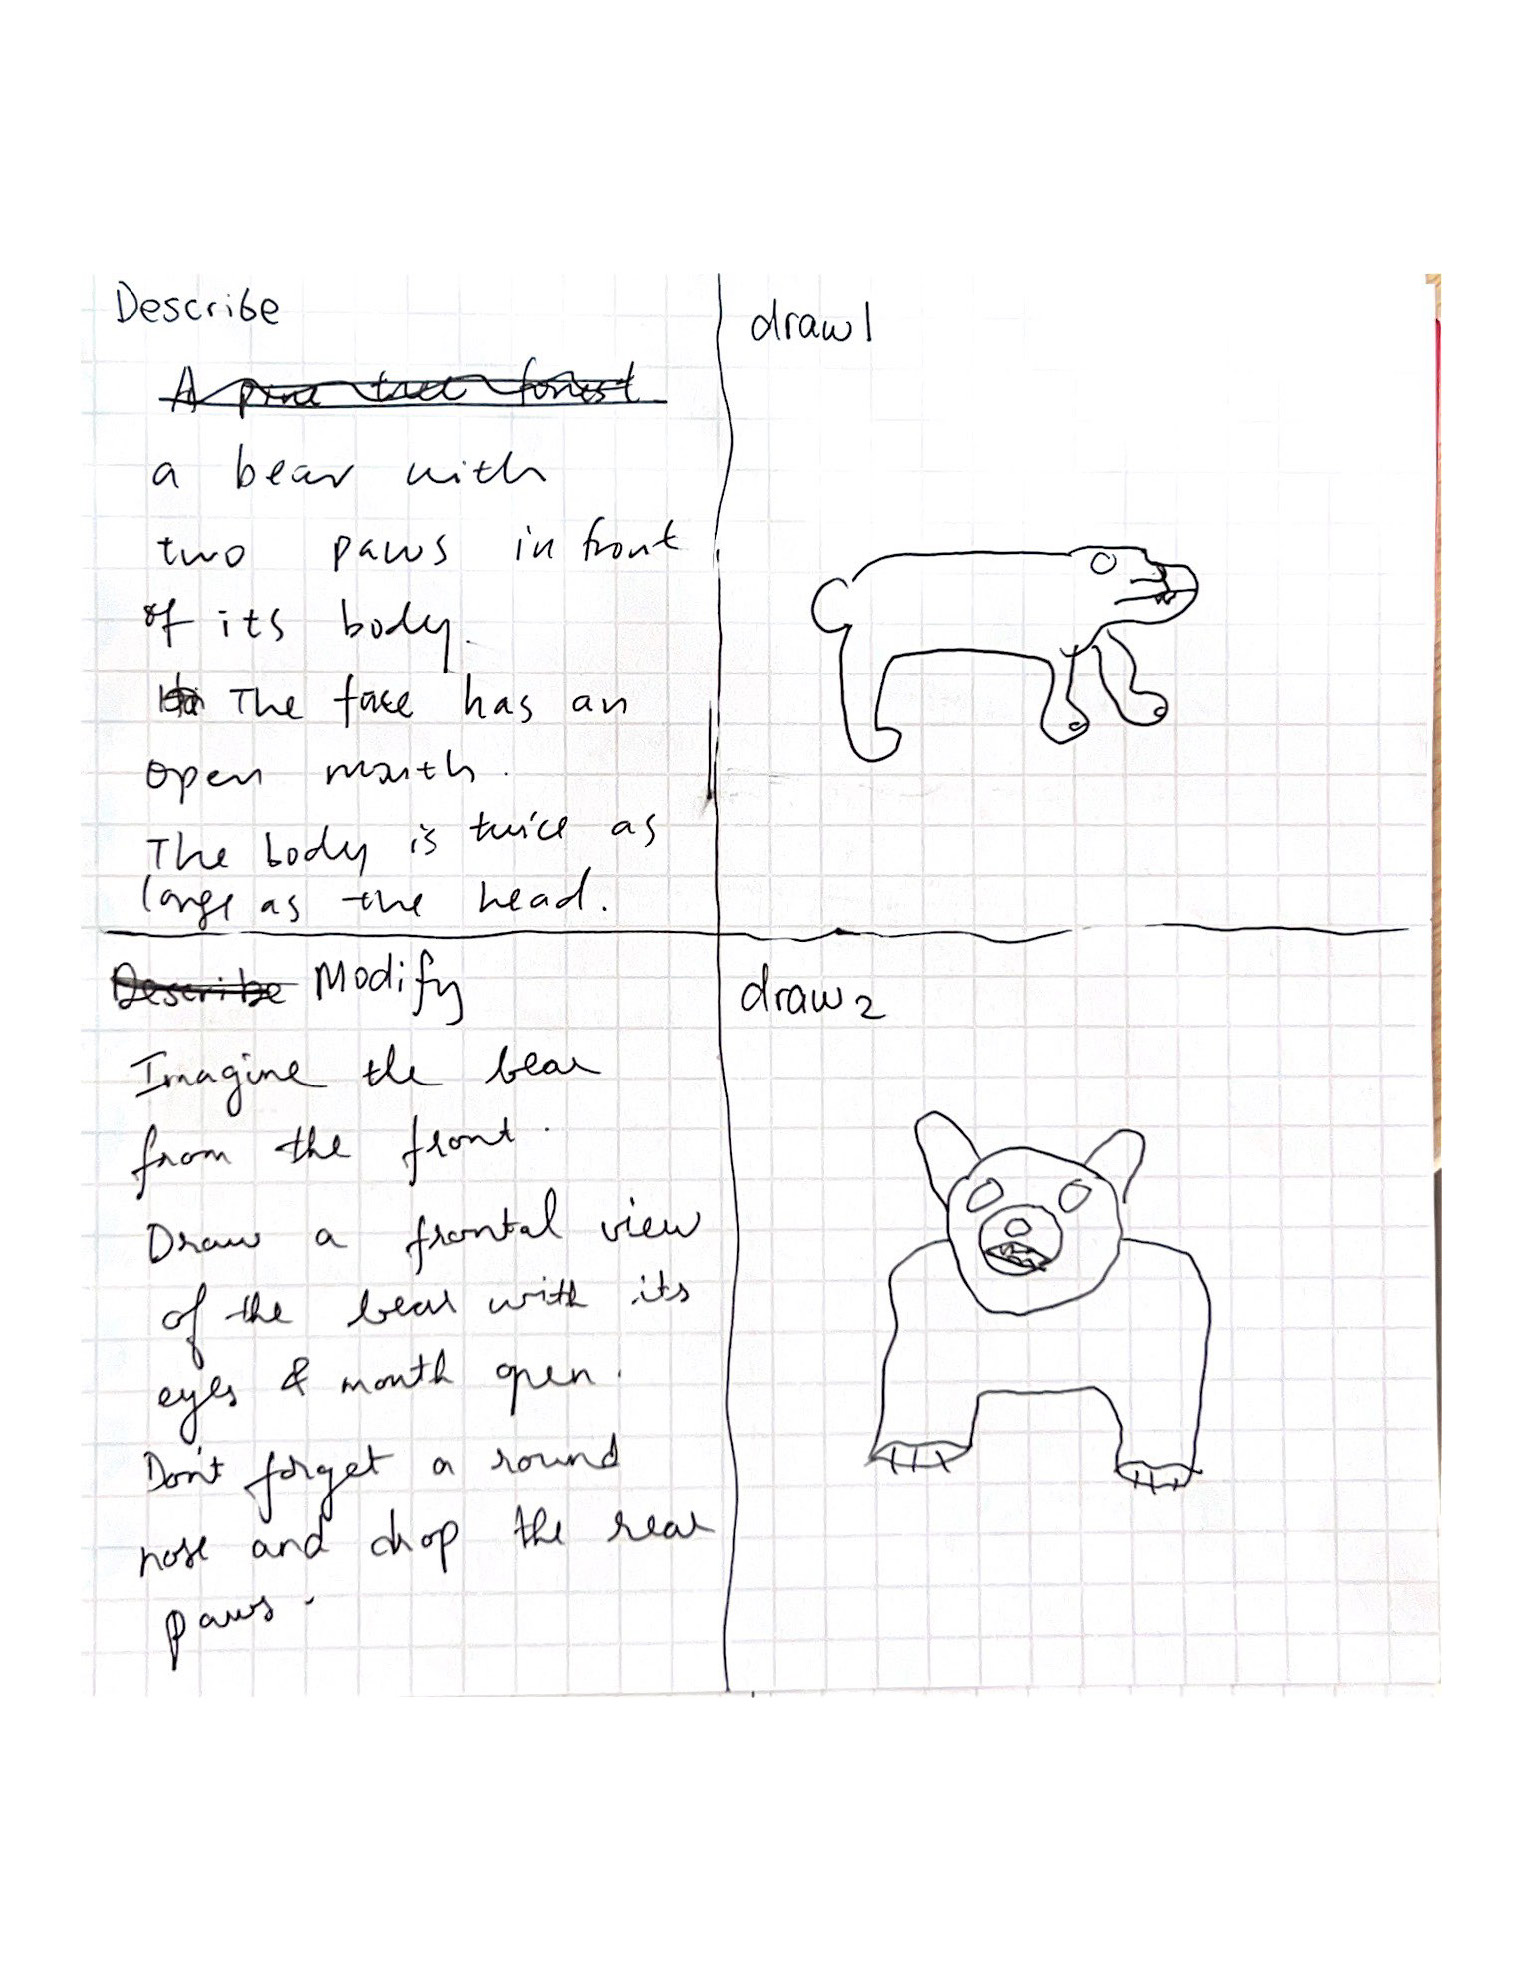 Describe
A pine tree forest
a bear with
two paws in front
of its body.
The face has an
open mouth.
The body is twice as
large as the head.
draw 1
Describe Modify
Imagine the bear
from the front.
Draw a frontal view
of the bear with its
eyes & mouth open.
Don't forget a round
nose and drop the rear
paws.
draw 2